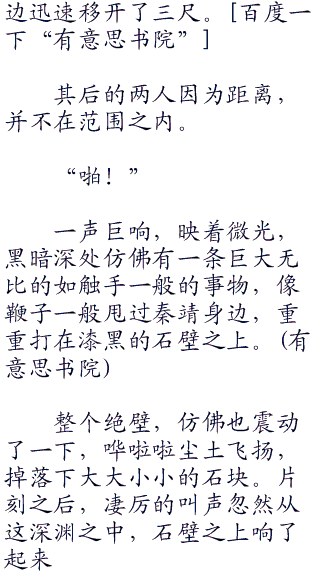 边迅速移开了三尺。[百度一
下“有意思书院”]
其后的两人因为距离，
并不在范围之内。
“啪！”
一声巨响，映着微光，
黑暗深处仿佛有一条巨大无
比的如触手一般的事物，像
鞭子一般甩过秦靖身边，重
重打在漆黑的石壁之上。(有
意思书院)
整个绝壁，仿佛也震动
了一下，哗啦啦尘土飞扬，
掉落下大大小小的石块。片
刻之后，凄厉的叫声忽然从
这深渊之中，石壁之上响了
起来